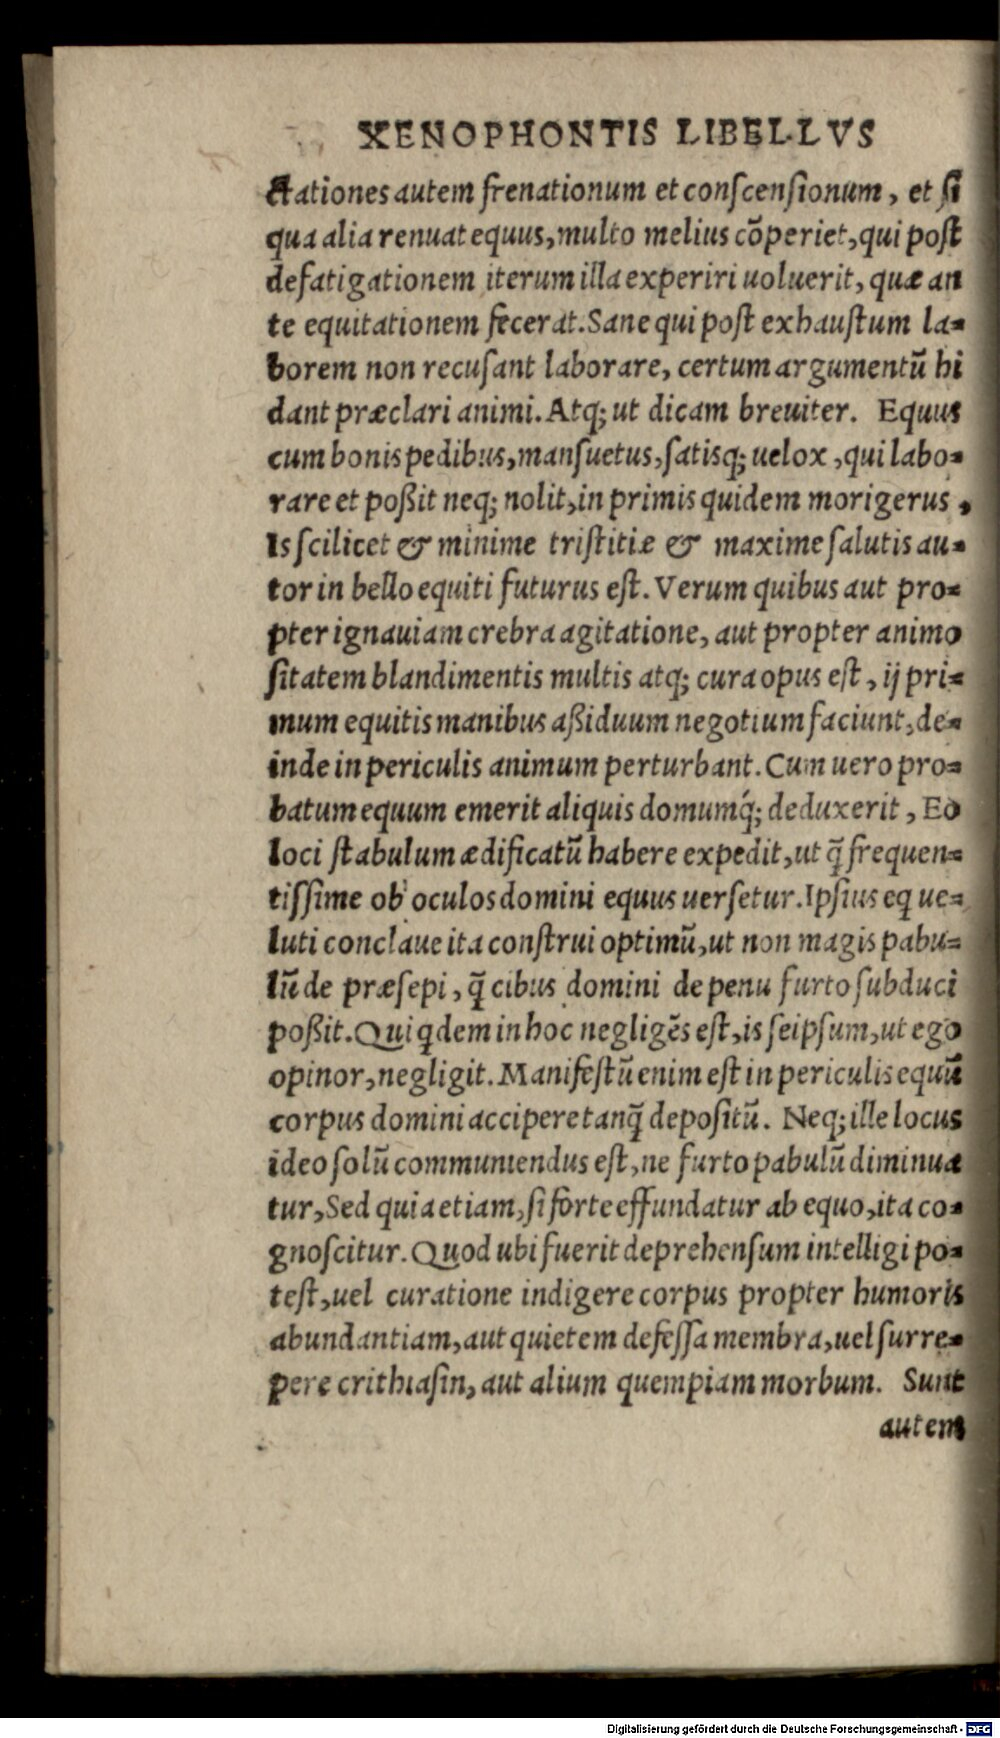 XENOPHONTIS LIBELLVS
ctationes autem frenationum et conscensionum, et si
qua alia renuat equus, multo melius cōperiet, qui post
defatigationem iterum illa experiri uoluerit, quæ an
te equitationem fecerat. Sane qui post exhaustum la-
borem non recusant laborare, certum argumentū hi
dant præclari animi. Atq; ut dicam breuiter. Equus
cum bonis pedibus, mansuetus, satisq; uelox, qui labo-
rare et poßit neq; nolit, in primis quidem morigerus,
Is scilicet & minime tristitiæ & maxime salutis au-
tor in bello equiti futurus est. Verum quibus aut pro-
pter ignauiam crebra agitatione, aut propter animo
sitatem blandimentis multis atq; cura opus est, ij pri-
mum equitis manibus aßiduum negotium faciunt, de-
inde in periculis animum perturbant. Cum uero pro-
batum equum emerit aliquis domumq́; deduxerit, Eo
loci stabulum ædificatū habere expedit, ut q̄ frequen-
tissime ob oculos domini equus uersetur. Ipsius eq ue-
luti conclaue ita construi optimū, ut non magis pabu-
lū de præsepi, q̄ cibus domini de penu furto subduci
poßit. Qui qdem in hoc negligēs est, is seipsum, ut ego
opinor, negligit. Manifestū enim est in periculis equū
corpus domini accipere tanq̄ depositū. Neq; ille locus
ideo solū communiendus est, ne furto pabulū diminua
tur, Sed quia etiam, si forte effundatur ab equo, ita co-
gnoscitur. Quod ubi fuerit deprehensum intelligi po-
test, uel curatione indigere corpus propter humoris
abundantiam, aut quietem defessa membra, uel surre-
pere crithiasin, aut alium quempiam morbum. Sunt
autem
Digitalisierung gefördert durch die Deutsche Forschungsgemeinschaft - DFG